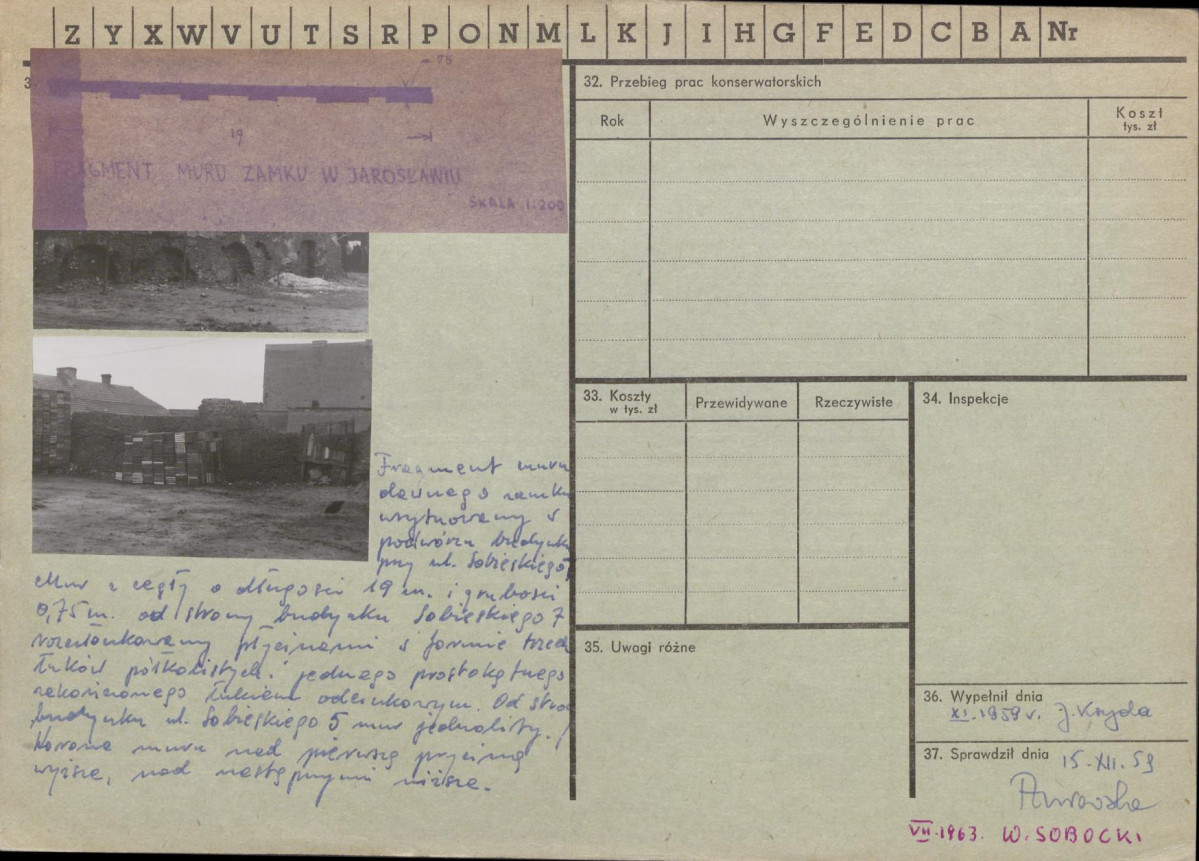 Z Y X W V U T S R P O N M L K J I H G F E D C B A Nr
3
75
19
FRAGMENT MURU ZAMKU W JAROSŁAWIU
SKALA 1:200
Fragment muru
dawnego zamku
usytuowany w
podwórzu budynku
przy ul. Sobieskiego
Mur z cegły o długości 19 m. i grubości
0,75 m. od strony budynku Sobieskiego 7
rozczłonkowany przycinami w formie trzech
łuków półkolistych i jednego prostokątnego
zakończonego łukiem odcinkowym. Od stro
budynku ul. Sobieskiego 5 mur jednolity.
Korona muru nad pierwszą
wyższa, nad następnymi niższa.
32. Przebieg prac konserwatorskich
Rok
Wyszczególnienie prac
Koszt
tys. zł
33. Koszty
w tys. zł
Przewidywane
Rzeczywiste
34. Inspekcje
35. Uwagi różne
36. Wypełnił dnia
XI.1959 r.
37. Sprawdził dnia 15.XII.59
VII.1963. W. SOBOCKI